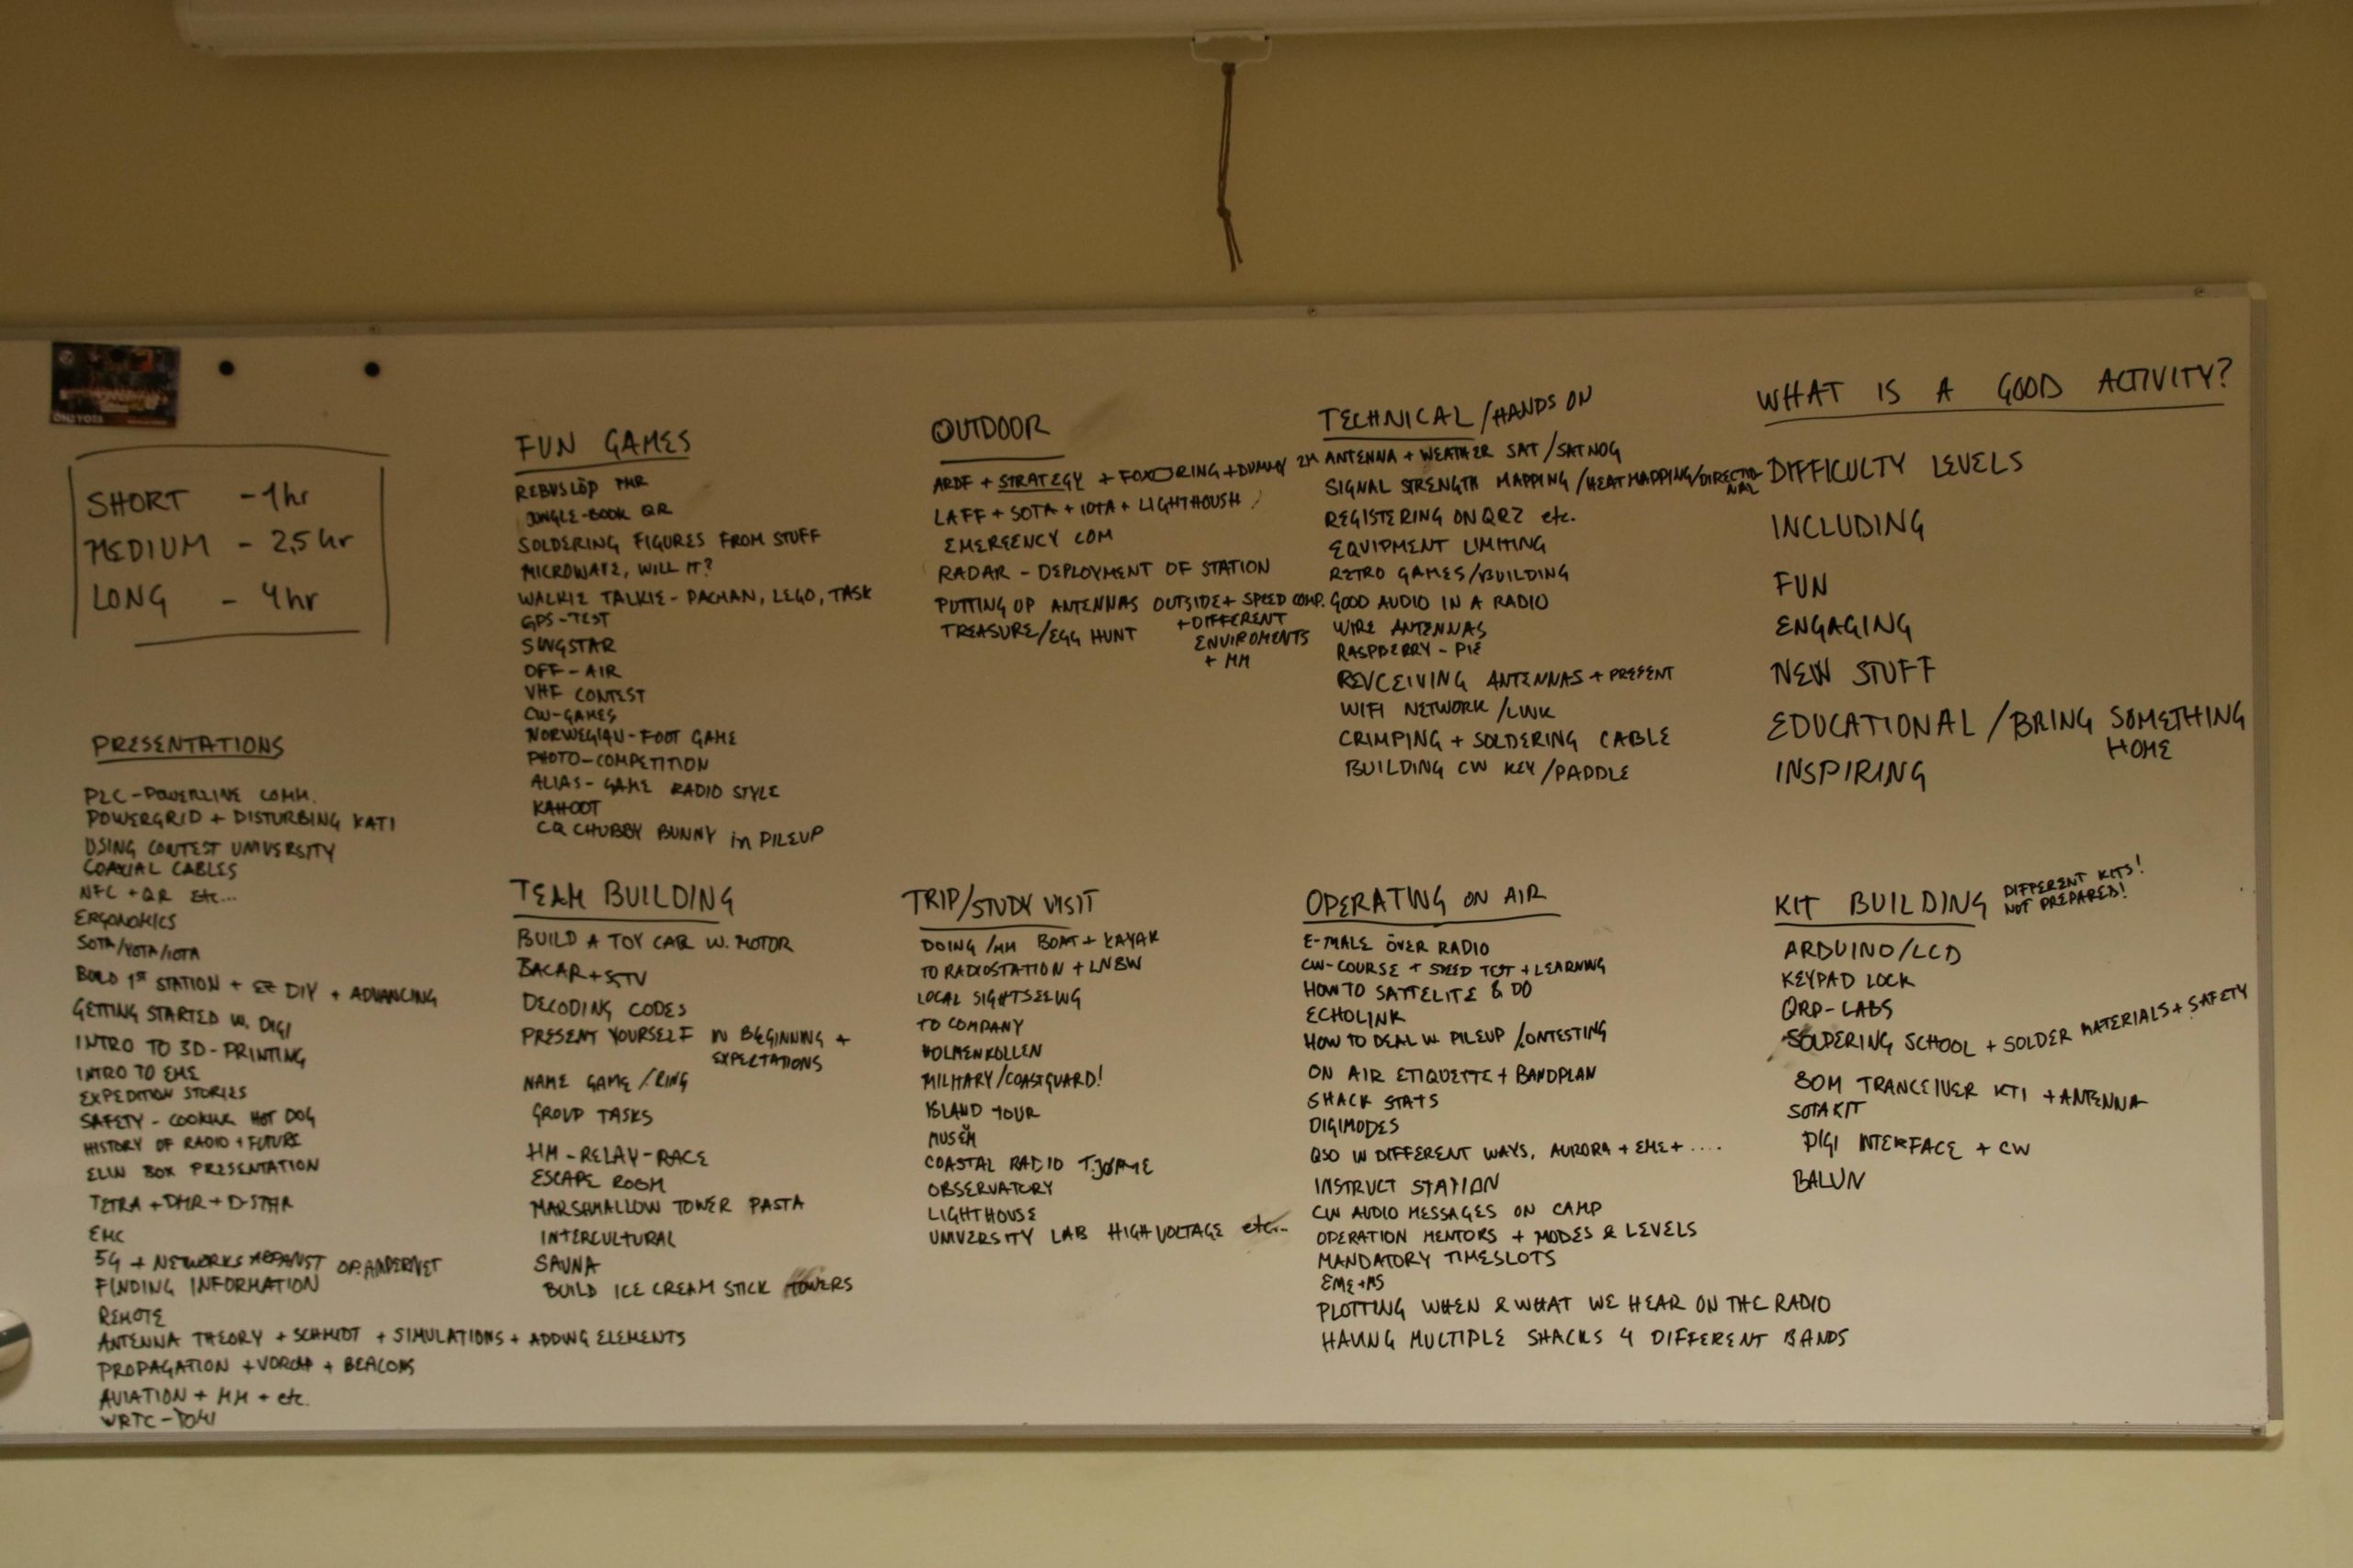 SHORT - 1hr
MEDIUM - 2,5 hr
LONG - 4hr
PRESENTATIONS
PLC - POWERLINE COMM.
POWERGRID + DISTURBING KATI
USING CONTEST UNIVERSITY
COAXIAL CABLES
NFC + QR Etc...
ERGONOMICS
SOTA/YOTA/IOTA
BUILD 1ST STATION + DIY + ADVANCING
GETTING STARTED W. DIGI
INTRO TO 3D-PRINTING
INTRO TO EME
EXPEDITION STORIES
SAFETY - COOKING HOT DOG
HISTORY OF RADIO + FUTURE
ELIN BOX PRESENTATION
TETRA + DMR + D-STAR
EMC
5G + NETWORKS
FINDING INFORMATION
REMOTE
ANTENNA THEORY + SCHMIDT + SIMULATIONS + ADDING ELEMENTS
PROPAGATION + + BEACONS
AVIATION + MM + etc.
WRTC -
FUN GAMES
REBUSLÖP PMR
JUNGLE-BOOK QR
SOLDERING FIGURES FROM STUFF
MICROWAVE, WILL IT?
WALKIE TALKIE - PACMAN, LEGO, TASK
GPS-TEST
SINGSTAR
OFF-AIR
VHF CONTEST
CW-GAMES
NORWEGIAN-FOOT GAME
PHOTO-COMPETITION
ALIAS-GAME RADIO STYLE
KAHOOT
CQ CHUBBY BUNNY in PILEUP
TEAM BUILDING
BUILD A TOY CAR W. MOTOR
BACAR + SSTV
DECODING CODES
PRESENT YOURSELF IN BEGINNING +
EXPECTATIONS
NAME GAME / RING
GROUP TASKS
HM-RELAY-RACE
ESCAPE ROOM
MARSHMALLOW TOWER PASTA
INTERCULTURAL
SAUNA
BUILD ICE CREAM STICK TOWERS
OUTDOOR
ARDF + STRATEGY + FOXORING + DUMMY
LAFF + SOTA + IOTA + LIGHTHOUSH
EMERGENCY COM
RADAR - DEPLOYMENT OF STATION
PUTTING UP ANTENNAS OUTSIDE + SPEED COMP.
+ DIFFERENT
ENVIROMENTS
+ MM
TREASURE/EGG HUNT
TRIP/STUDY VISIT
DOING /MM BOAT + KAYAK
TO RADIOSTATION + LNBW
LOCAL SIGHTSEEING
TO COMPANY
HOLMENKOLLEN
MILITARY/COASTGUARD!
ISLAND TOUR
COASTAL RADIO TJØME
OBSERVATORY
LIGHTHOUSE
UNIVERSITY LAB HIGH VOLTAGE etc...
TECHNICAL/HANDS ON
2M ANTENNA + WEATHER SAT/SATNOG
SIGNAL STRENGTH MAPPING/HEATMAPPING/DIRECTIO-
NAL
REGISTERING ON QRZ etc.
EQUIPMENT LIMITING
RETRO GAMES/BUILDING
GOOD AUDIO IN A RADIO
WIRE ANTENNAS
RASPBERRY-PIE
REVCEIVING ANTENNAS + PRESENT
WIFI NETWORK/LINK
CRIMPING + SOLDERING CABLE
BUILDING CW KEY/PADDLE
OPERATING ON AIR
E-MALE ÖVER RADIO
CW-COURSE + SPEED TEST + LEARNING
HOW TO SATTELITE & DO
ECHOLINK
HOW TO DEAL W PILEUP/CONTESTING
ON AIR ETIQUETTE + BANDPLAN
SHACK STATS
DIGIMODES
QSO W DIFFERENT WAYS, AURORA + EME + ....
INSTRUCT STATION
CW AUDIO MESSAGES ON CAMP
OPERATION MENTORS + MODES & LEVELS
MANDATORY TIMESLOTS
EME + MS
PLOTTING WHEN & WHAT WE HEAR ON THE RADIO
HAVING MULTIPLE SHACKS 4 DIFFERENT BANDS
WHAT IS A GOOD ACTIVITY?
DIFFICULTY LEVELS
INCLUDING
FUN
ENGAGING
NEW STUFF
EDUCATIONAL/BRING SOMETHING
HOME
INSPIRING
KIT BUILDING
DIFFERENT KITS!
NOT PREPARED!
ARDUINO/LCD
KEYPAD LOCK
QRP-LABS
SOLDERING SCHOOL + SOLDER MATERIALS + SAFETY
80M TRANCEIVER KTI + ANTENNA
SOTA KIT
DIGI INTERFACE + CW
BALUN